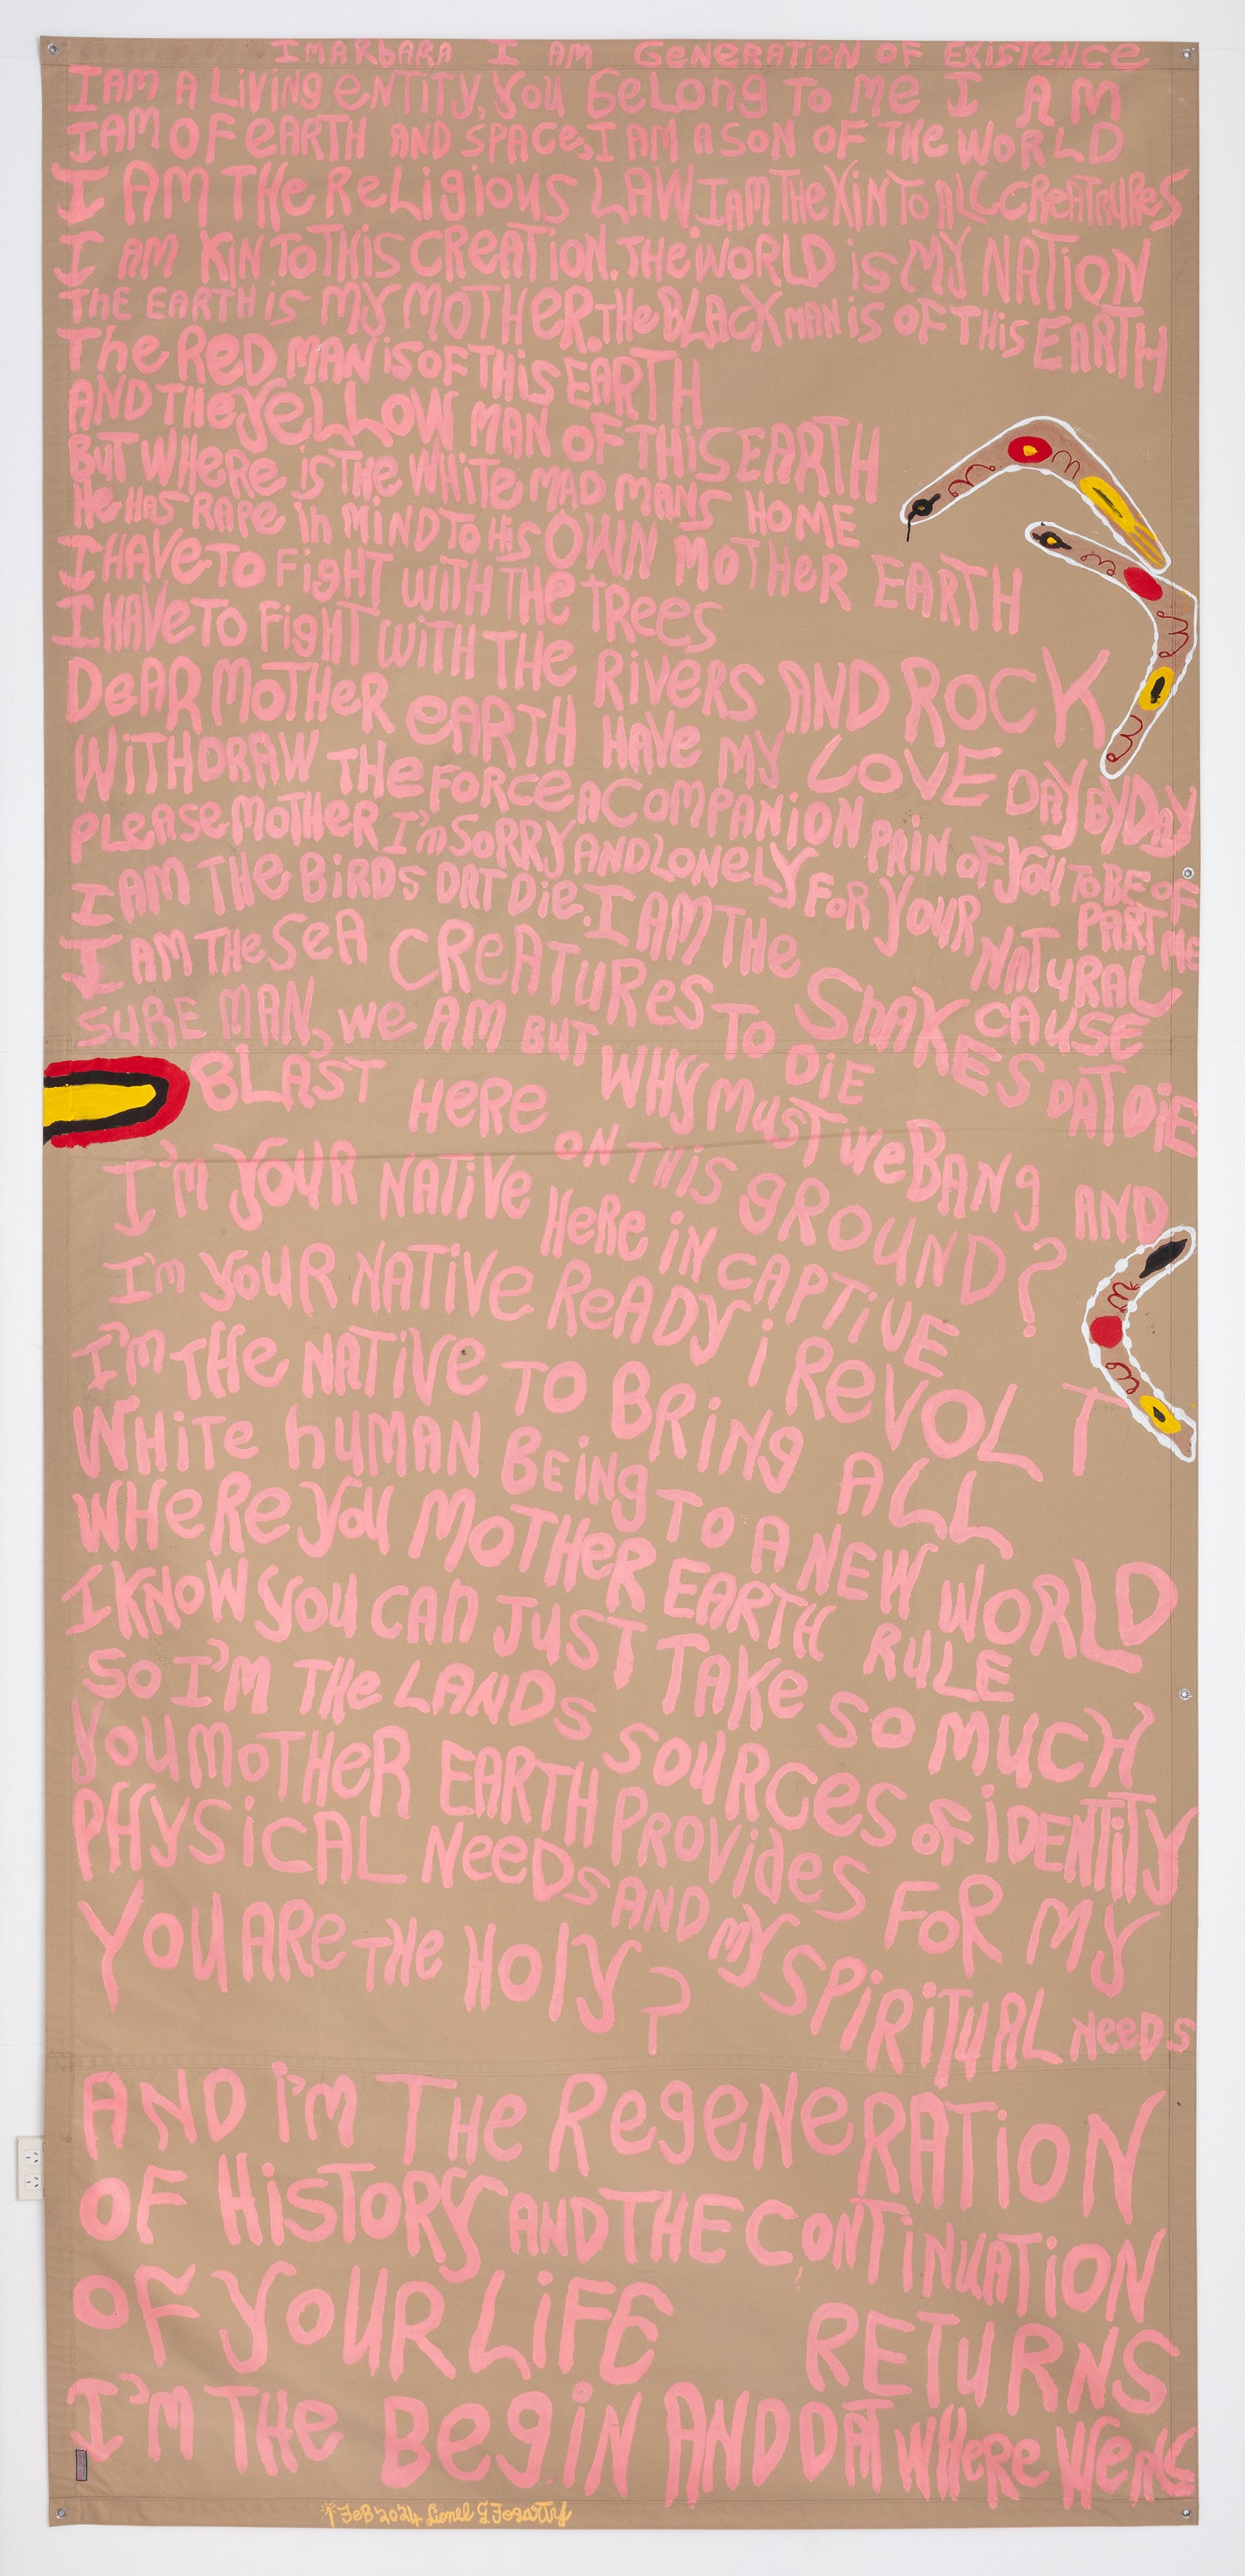 IMARbARA I AM GeneRATION OF EXISTENCE
I AM A LiViNg eNTiTy, you BeLong To Me I AM
I AM OF eARTH AND SPACe, I AM A SON OF THe WoRLD
I AM THe ReLigious LAW I AM THe KiNTo ALL CReATRURes
I AM KiN To THiS CReATioN. THe WoRLD iS MY NATioN
THE EARTH iS MY MOTHeR. THe BLACK MAN iS OF THiS EARTH
The ReD MAN iS OF THiS EARTH
AND THe YeLLOW MAN OF THiS EARTH
BuT WHeRe iS THe WHiTe MAD MANS HOME
He HAS RAPe in MiND To HiS OWN MOTHeR EARTH
I HAVe To FighT WiTH THe TRees
I HAVe To FighT WiTH THe RiVeRS AND ROCK
DeAR MOTHeR eARTH HAVe MY LOVE DAY BY DAY
WiTHDRAW THe FORCe ACOMPANiON PAiN OF you To BE OF PART Me
PLeASe MOTHeR I'm SoRRY AND LoNeLY FoR YouR NATuRAL CAUSE
I AM THe BiRDS DAT Die. I AM THe SNAKES DAT DiE
I AM THe SeA CReATuReS To DiE
SuRE MAN, We AM BuT WHY MuST We BANg AND
BLAST HeRe ON THiS gROUND?
I'm youR NATiVe HeRe iN CAPTiVE
I'm youR NATiVe ReADy i ReVOLT
I'm THe NATiVe TO BRiNg ALL
WHiTe huMAN BEiNg TO A NEW WORLD
WHeRe you MOTHeR EARTH RuLE
I KNoW you CAn JuST TAKe SO MuCH
SO I'M THe LANDS SouRCeS oF iDENTiTY
you MoTHeR EARTH PROVideS FOR MY
PHYSiCAL NeeDS AND MY SPiRiTuAL NeeDS
YOU ARe THe HOly?
AND i'm THe RegeNeRATiON
OF HiSTORY AND THE CONTiNuATiON
OF YOuR LiFE RETuRNS
I'M THe BegiN AND DAT WHeRe WeRe
FeB 2024 Lionel G Fogarty